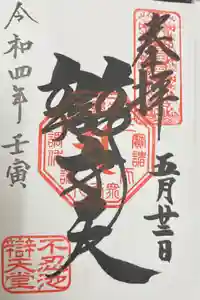 奉拝
五月廿三日
辯才天
令和四年壬寅
不忍池
辯天堂